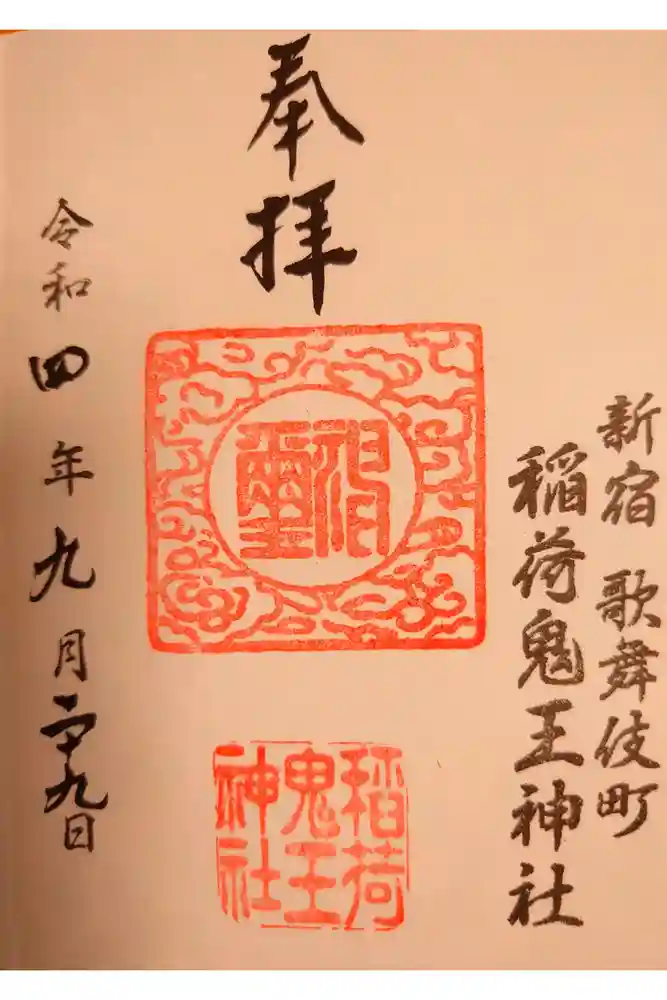 新宿 歌舞伎町
稲荷鬼王神社
奉拝
神璽
稲荷
鬼王
神社
令和四年九月二十九日